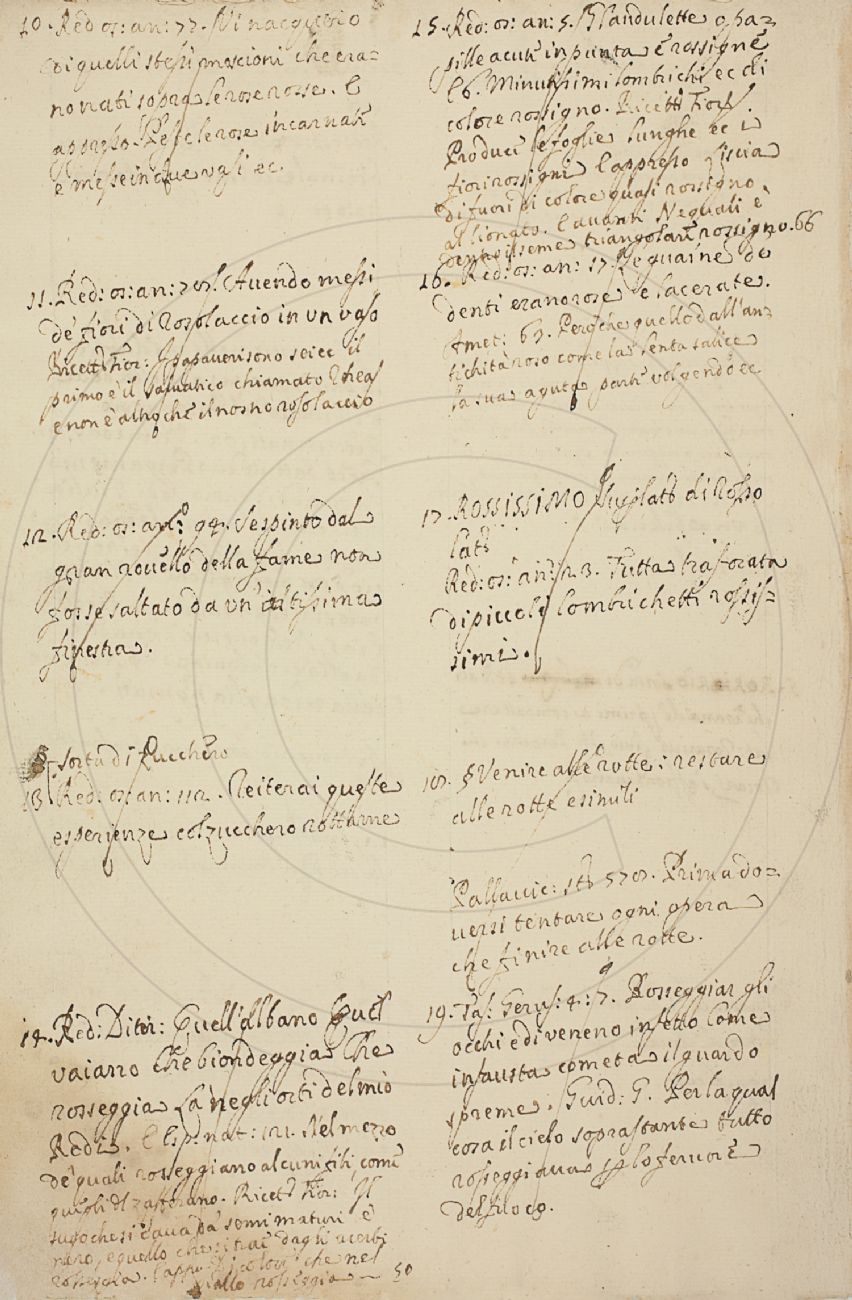 10. Red: os: an: 77. Vi nacquero
di quelli stessi moscioni che era=
no nati sopra le rose rosse. E
appresso. Pesche rose incarnate
e messe in due vasi ec.
11. Red: os: an: Avendo messi
de' fiori di Rosolaccio in un vaso
Ricett: Fior: I papaveri sono sei ec il
primo è il salvatico chiamato Rheas
e non è altro che il nostro rosolaccio
12. Red: os: 94. Se spinto dal
gran rovello della fame non
fosse saltato da un' altissima
finestra.
§ sorta di Zucchero
13. Red: os: an: 112. Reiterai queste
esperienze col zucchero rottame
14. Red: Ditir: Quell'Albano Quel
vaiano Che biondeggia Che
rosseggia Là negli orti del mio
Redi. E sp: nat: 121. Nel mezzo
de' quali rosseggiano alcuni fili, come
quegli del zafferano. Ricett: Fior: Il
sugo che si cava da' semi maturi è
nero, e quello che si trae dagli acerbi
rosseggia. E appr: colore che nel
giallo rosseggia 50
15. Red: os: an: 5. Glandulette o pa=
pille acute in punta e rossigne
E 6. Minutissimi lombrichi ec di
colore rossigno. Ricett: Fior:
Produce le foglie lunghe ec i
fiori rossigni E appresso Liscia
di fuori di colore quasi rossigno
al lionato. E avanti Ne quali è
dentro il seme triangolare rossigno. 66
16. Red: os: an: 17. Le guaine de
denti erano rose e lacerate.
Amet: 63. Perché quello dall'an=
tichità roso come la lenta salice
la sua aguta parte volgendo ec
17. ROSSISSIMO Superlat: di Rosso
Lat:
Red: os: an: 123. Tutta traforata
di piccoli lombrichetti rossis=
simi.
18. § Venire alle rotte: restare
alle rotte e simili
Pallavic: st: Prima do=
versi tentare ogni opera
che finire alle rotte.
19. Tas: Gerus: 4: 7. Rosseggian gli
occhi e di veneno infetto Come
infausta cometa il guardo
spreme. Guid: G. Per la qual
cosa il cielo soprastante tutto
rosseggiava per lo fervore
del fuoco.